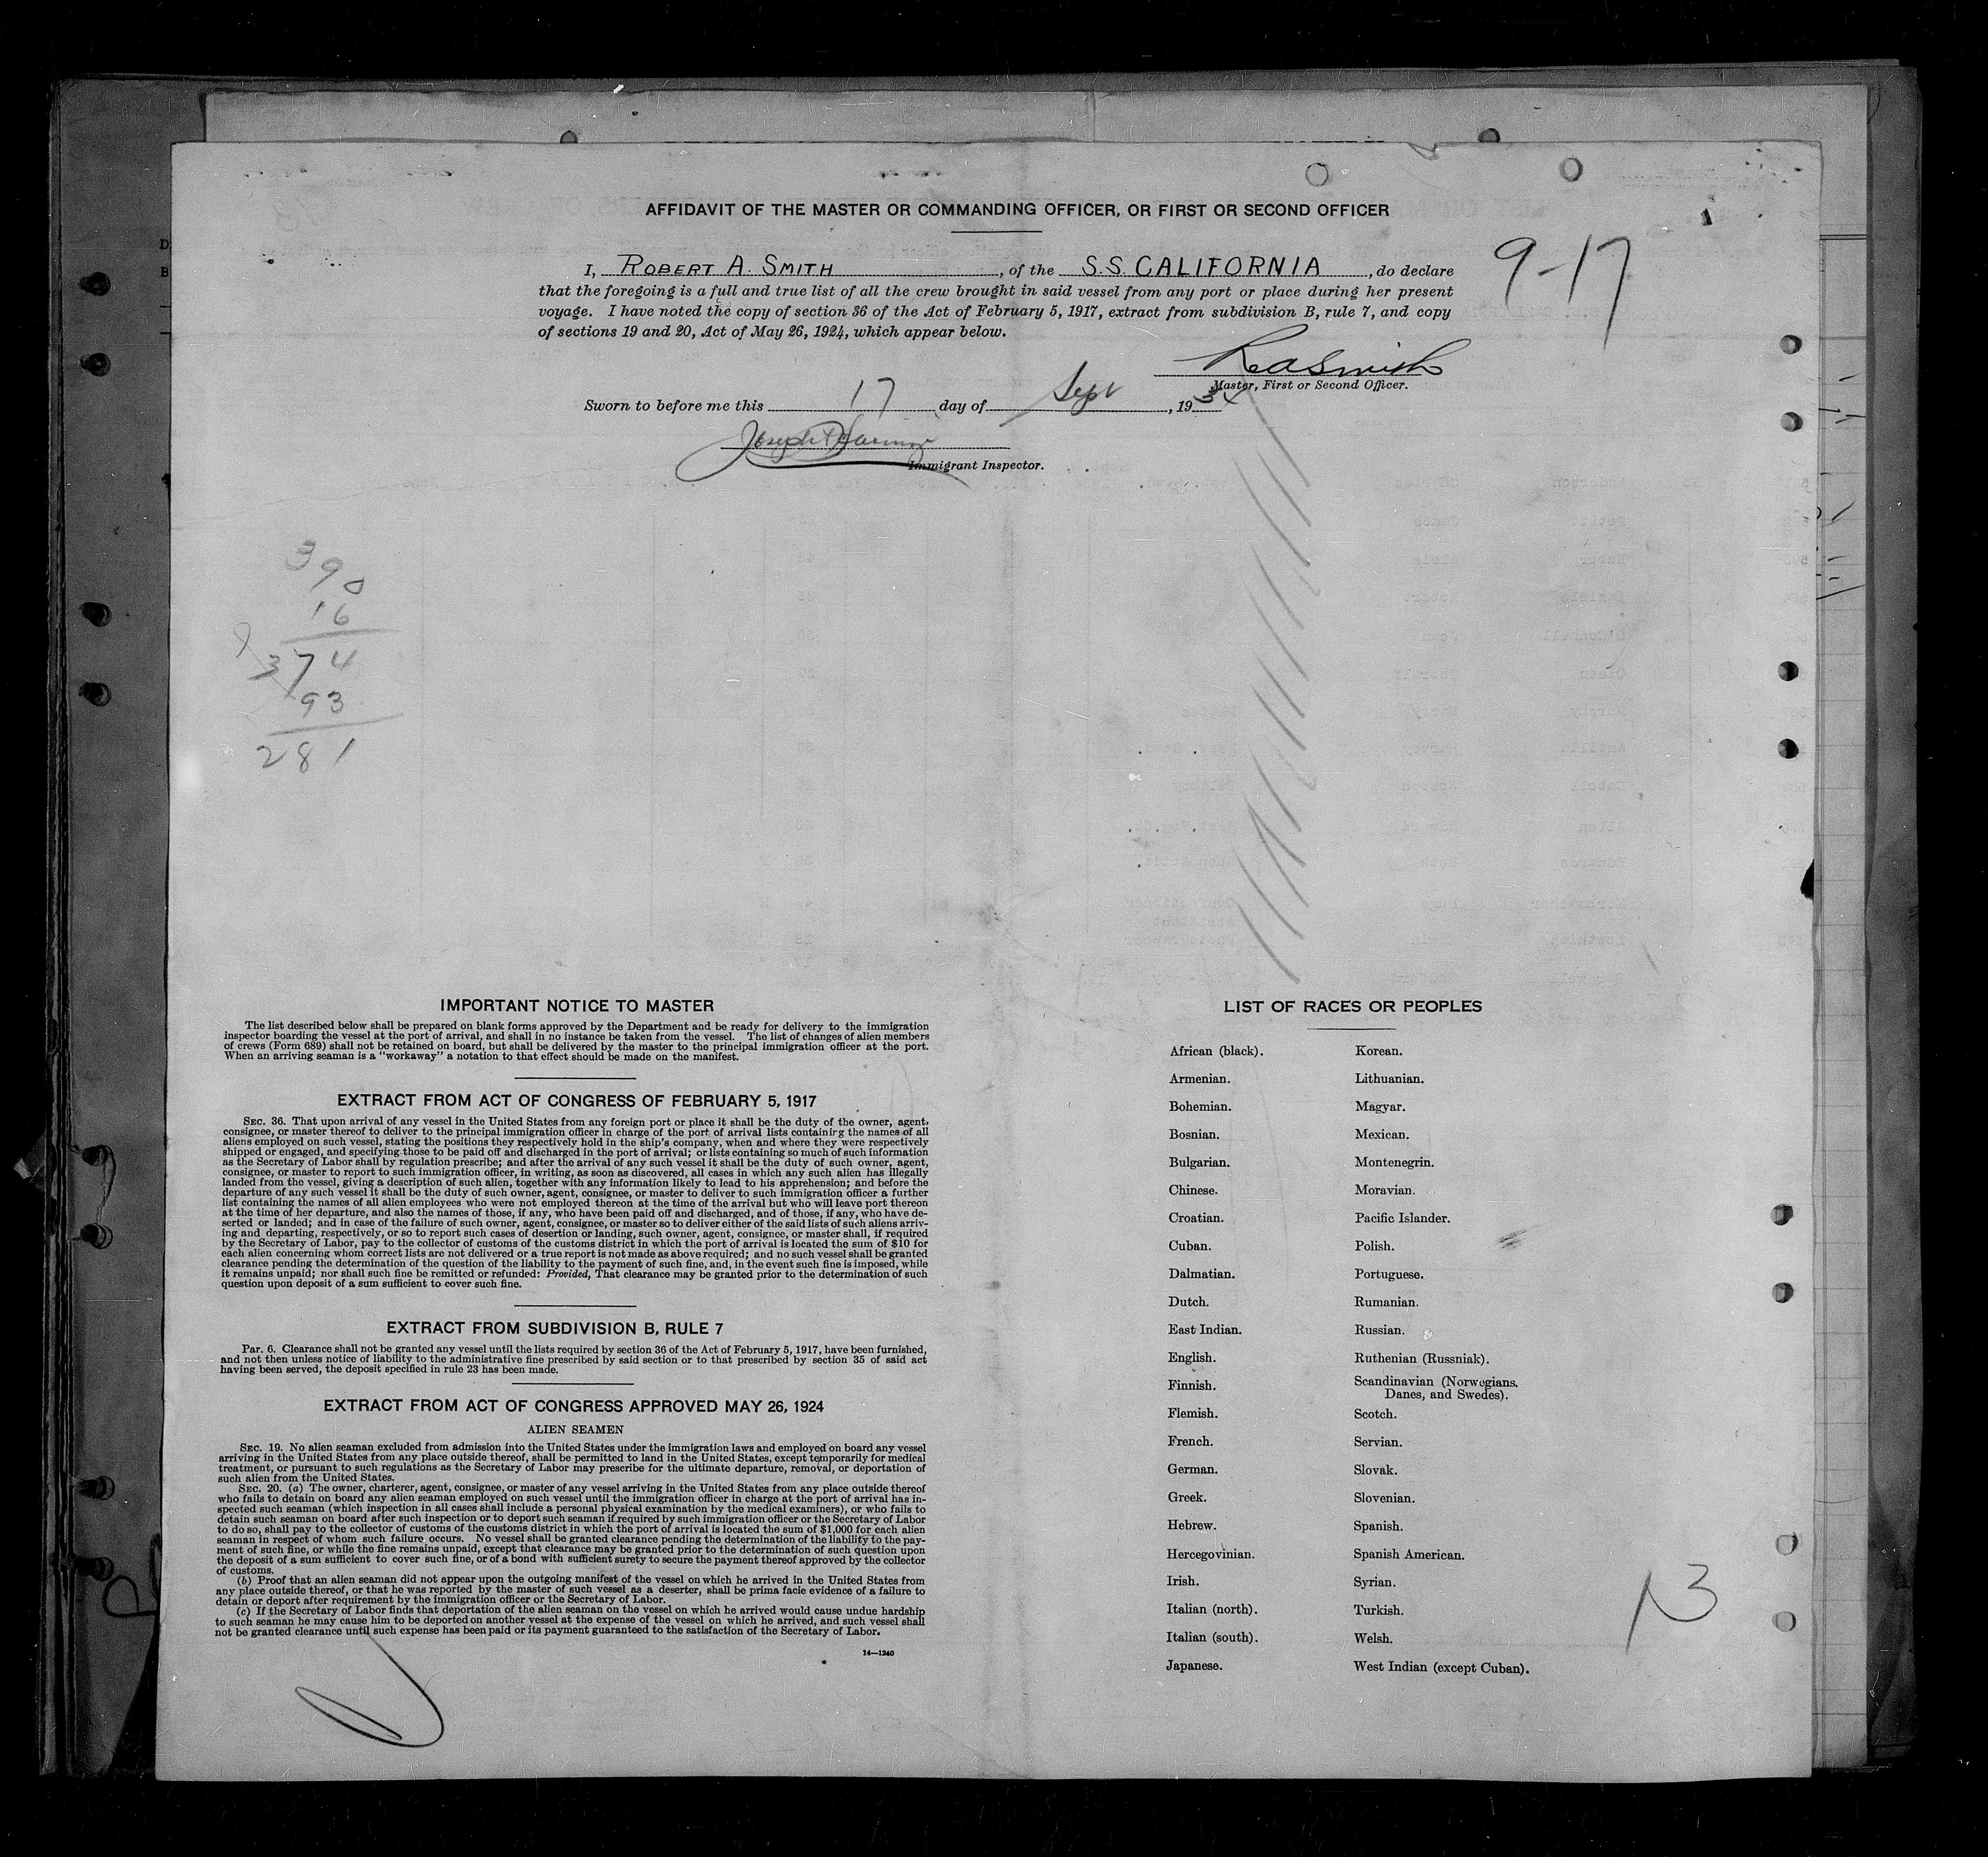 AFFIDAVIT OF THE MASTER OR COMMANDING OFFICER, OR FIRST OR SECOND OFFICER
I, ROBERT A. SMITH, of the S.S. CALIFORNIA, do declare
that the foregoing is a full and true list of all the crew brought in said vessel from any port or place during her present
voyage. I have noted the copy of section 36 of the Act of February 5, 1917, extract from subdivision B, rule 7, and copy
of sections 19 and 20, Act of May 26, 1924, which appear below.
9-17
R A Smith
Master, First or Second Officer.
Sworn to before me this 17 day of Sept, 1934
Joseph
Immigrant Inspector.
390
16
374
93
281
IMPORTANT NOTICE TO MASTER
The list described below shall be prepared on blank forms approved by the Department and be ready for delivery to the immigration
inspector boarding the vessel at the port of arrival, and shall in no instance be taken from the vessel. The list of changes of alien members
of crews (Form 689) shall not be retained on board, but shall be delivered by the master to the principal immigration officer at the port.
When an arriving seaman is a "workaway" a notation to that effect should be made on the manifest.
EXTRACT FROM ACT OF CONGRESS OF FEBRUARY 5, 1917
SEC. 36. That upon arrival of any vessel in the United States from any foreign port or place it shall be the duty of the owner, agent,
consignee, or master thereof to deliver to the principal immigration officer in charge of the port of arrival lists containing the names of all
aliens employed on such vessel, stating the positions they respectively hold in the ship's company, when and where they were respectively
shipped or engaged, and specifying those to be paid off and discharged in the port of arrival; or lists containing so much of such information
as the Secretary of Labor shall by regulation prescribe; and after the arrival of any such vessel it shall be the duty of such owner, agent,
consignee, or master to report to such immigration officer, in writing, as soon as discovered, all cases in which any such alien has illegally
landed from the vessel, giving a description of such alien, together with any information likely to lead to his apprehension; and before the
departure of any such vessel it shall be the duty of such owner, agent, consignee, or master to deliver to such immigration officer a further
list containing the names of all alien employees who were not employed thereon at the time of the arrival but who will leave port thereon
at the time of her departure, and also the names of those, if any, who have been paid off and discharged, and of those, if any, who have de-
serted or landed; and in case of the failure of such owner, agent, consignee, or master so to deliver either of the said lists of such aliens arriv-
ing and departing, respectively, or so to report such cases of desertion or landing, such owner, agent, consignee, or master shall, if required
by the Secretary of Labor, pay to the collector of customs of the customs district in which the port of arrival is located the sum of $10 for
each alien concerning whom correct lists are not delivered or a true report is not made as above required; and no such vessel shall be granted
clearance pending the determination of the question of the liability to the payment of such fine, and, in the event such fine is imposed, while
it remains unpaid; nor shall such fine be remitted or refunded: Provided, That clearance may be granted prior to the determination of such
question upon deposit of a sum sufficient to cover such fine.
EXTRACT FROM SUBDIVISION B, RULE 7
Par. 6. Clearance shall not be granted any vessel until the lists required by section 36 of the Act of February 5, 1917, have been furnished,
and not then unless notice of liability to the administrative fine prescribed by said section or to that prescribed by section 35 of said act
having been served, the deposit specified in rule 23 has been made.
EXTRACT FROM ACT OF CONGRESS APPROVED MAY 26, 1924
ALIEN SEAMEN
SEC. 19. No alien seaman excluded from admission into the United States under the immigration laws and employed on board any vessel
arriving in the United States from any place outside thereof, shall be permitted to land in the United States, except temporarily for medical
treatment, or pursuant to such regulations as the Secretary of Labor may prescribe for the ultimate departure, removal, or deportation of
such alien from the United States.
SEC. 20. (a) The owner, charterer, agent, consignee, or master of any vessel arriving in the United States from any place outside thereof
who fails to detain on board any alien seaman employed on such vessel until the immigration officer in charge at the port of arrival has in-
spected such seaman (which inspection in all cases shall include a personal physical examination by the medical examiners), or who fails to
detain such seaman on board after such inspection or to deport such seaman if required by such immigration officer or the Secretary of Labor
to do so, shall pay to the collector of customs of the customs district in which the port of arrival is located the sum of $1,000 for each alien
seaman in respect of whom such failure occurs. No vessel shall be granted clearance pending the determination of the liability to the pay-
ment of such fine, or while the fine remains unpaid, except that clearance may be granted prior to the determination of such question upon
the deposit of a sum sufficient to cover such fine, or of a bond with sufficient surety to secure the payment thereof approved by the collector
of customs.
(b) Proof that an alien seaman did not appear upon the outgoing manifest of the vessel on which he arrived in the United States from
any place outside thereof, or that he was reported by the master of such vessel as a deserter, shall be prima facie evidence of a failure to
detain or deport after requirement by the immigration officer or the Secretary of Labor.
(c) If the Secretary of Labor finds that deportation of the alien seaman on the vessel on which he arrived would cause undue hardship
to such seaman he may cause him to be deported on another vessel at the expense of the vessel on which he arrived, and such vessel shall
not be granted clearance until such expense has been paid or its payment guaranteed to the satisfaction of the Secretary of Labor.
14—1240
LIST OF RACES OR PEOPLES
African (black).
Armenian.
Bohemian.
Bosnian.
Bulgarian.
Chinese.
Croatian.
Cuban.
Dalmatian.
Dutch.
East Indian.
English.
Finnish.
Flemish.
French.
German.
Greek.
Hebrew.
Hercegovinian.
Irish.
Italian (north).
Italian (south).
Japanese.
Korean.
Lithuanian.
Magyar.
Mexican.
Montenegrin.
Moravian.
Pacific Islander.
Polish.
Portuguese.
Rumanian.
Russian.
Ruthenian (Russniak).
Scandinavian (Norwegians,
Danes, and Swedes).
Scotch.
Servian.
Slovak.
Slovenian.
Spanish.
Spanish American.
Syrian.
Turkish.
Welsh.
West Indian (except Cuban).
13